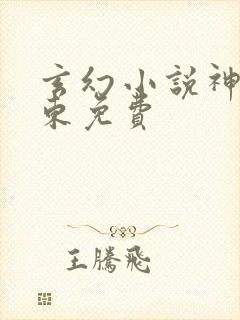 玄幻小説神
東免費
王騰飛